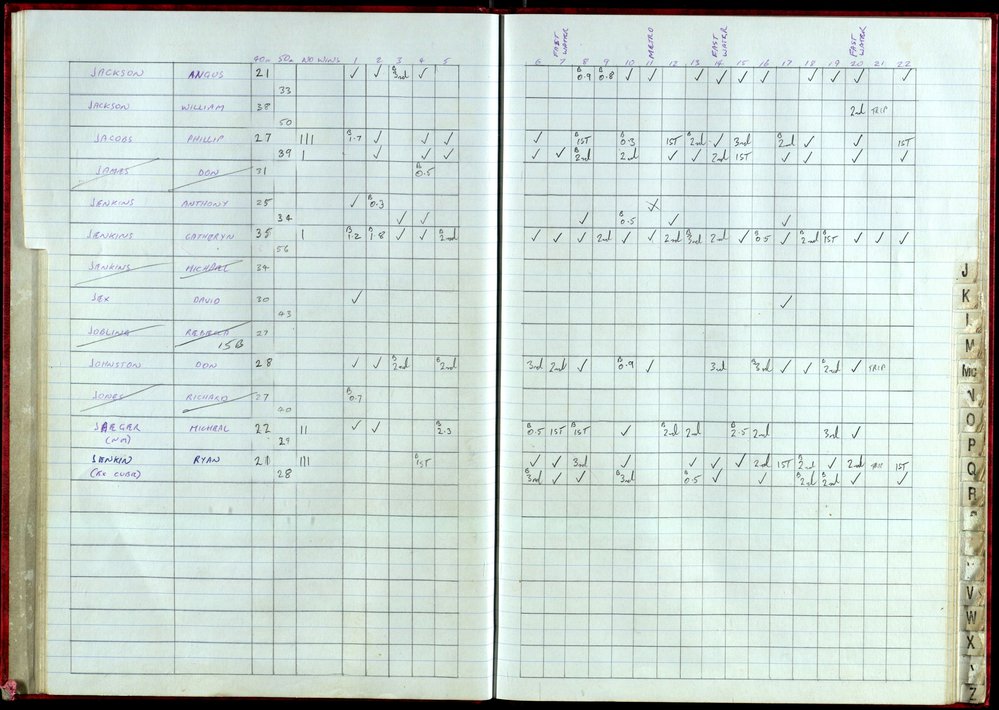 FAST WATER METRO FAST WATER FAST WATER
40m 50m NO WINS 1 2 3 4 5 6 7 8 9 10 11 12 13 14 15 16 17 18 19 20 21 22
JACKSON ANGUS 21 ✓ ✓ B 3rd ✓ B 0.9 B 0.8 ✓ ✓ ✓ ✓ ✓ ✓ ✓ ✓ ✓ ✓
33
JACKSON WILLIAM 38 2nd TRIP
50
JACOBS PHILLIP 27 III B 1.7 ✓ ✓ ✓ ✓ B 1ST B 0.3 1ST B 2nd ✓ 3rd B 2nd ✓ ✓ 1ST
39 I ✓ ✓ ✓ ✓ ✓ B 2nd 2nd ✓ ✓ 2nd 1ST ✓ ✓ ✓ ✓
JAMES DON 31 B 0.5
JENKINS ANTHONY 25 ✓ B 0.3
34 ✓ ✓ ✓ B 0.5 ✓ ✓
JENKINS CATHERYN 35 I B 1.2 B 1.8 ✓ ✓ B 2nd ✓ ✓ ✓ 2nd ✓ ✓ 2nd B 3rd 2nd ✓ B 0.5 ✓ B 2nd B 1ST ✓ ✓ ✓
56
JENKINS MICHAEL 34
JEX DAVID 30 ✓ ✓
43
JOBLING REBECCA 27
15B
JOHNSTON DON 28 ✓ ✓ B 2nd B 2nd 3rd 2nd ✓ B 0.9 ✓ 3rd B 3rd ✓ ✓ B 2nd ✓ TRIP
JONES RICHARD 27 B 0.7
40
JAEGER MICHEAL 22 II ✓ ✓ B 2.3 B 0.5 1ST B 1ST ✓ B 2nd 2nd B 2.5 2nd 3rd ✓
(NM) 29
JENKIN RYAN 21 III B 1ST ✓ ✓ 3rd ✓ ✓ ✓ ✓ 2nd 1ST B 2nd ✓ 2nd TRIP 1ST
(EX CUBA) 28 B 3rd ✓ ✓ B 3rd B 0.5 ✓ ✓ B 2nd B 2nd ✓ ✓
J
K
M
Mc
O
P
Q
R
V
W
X
Z